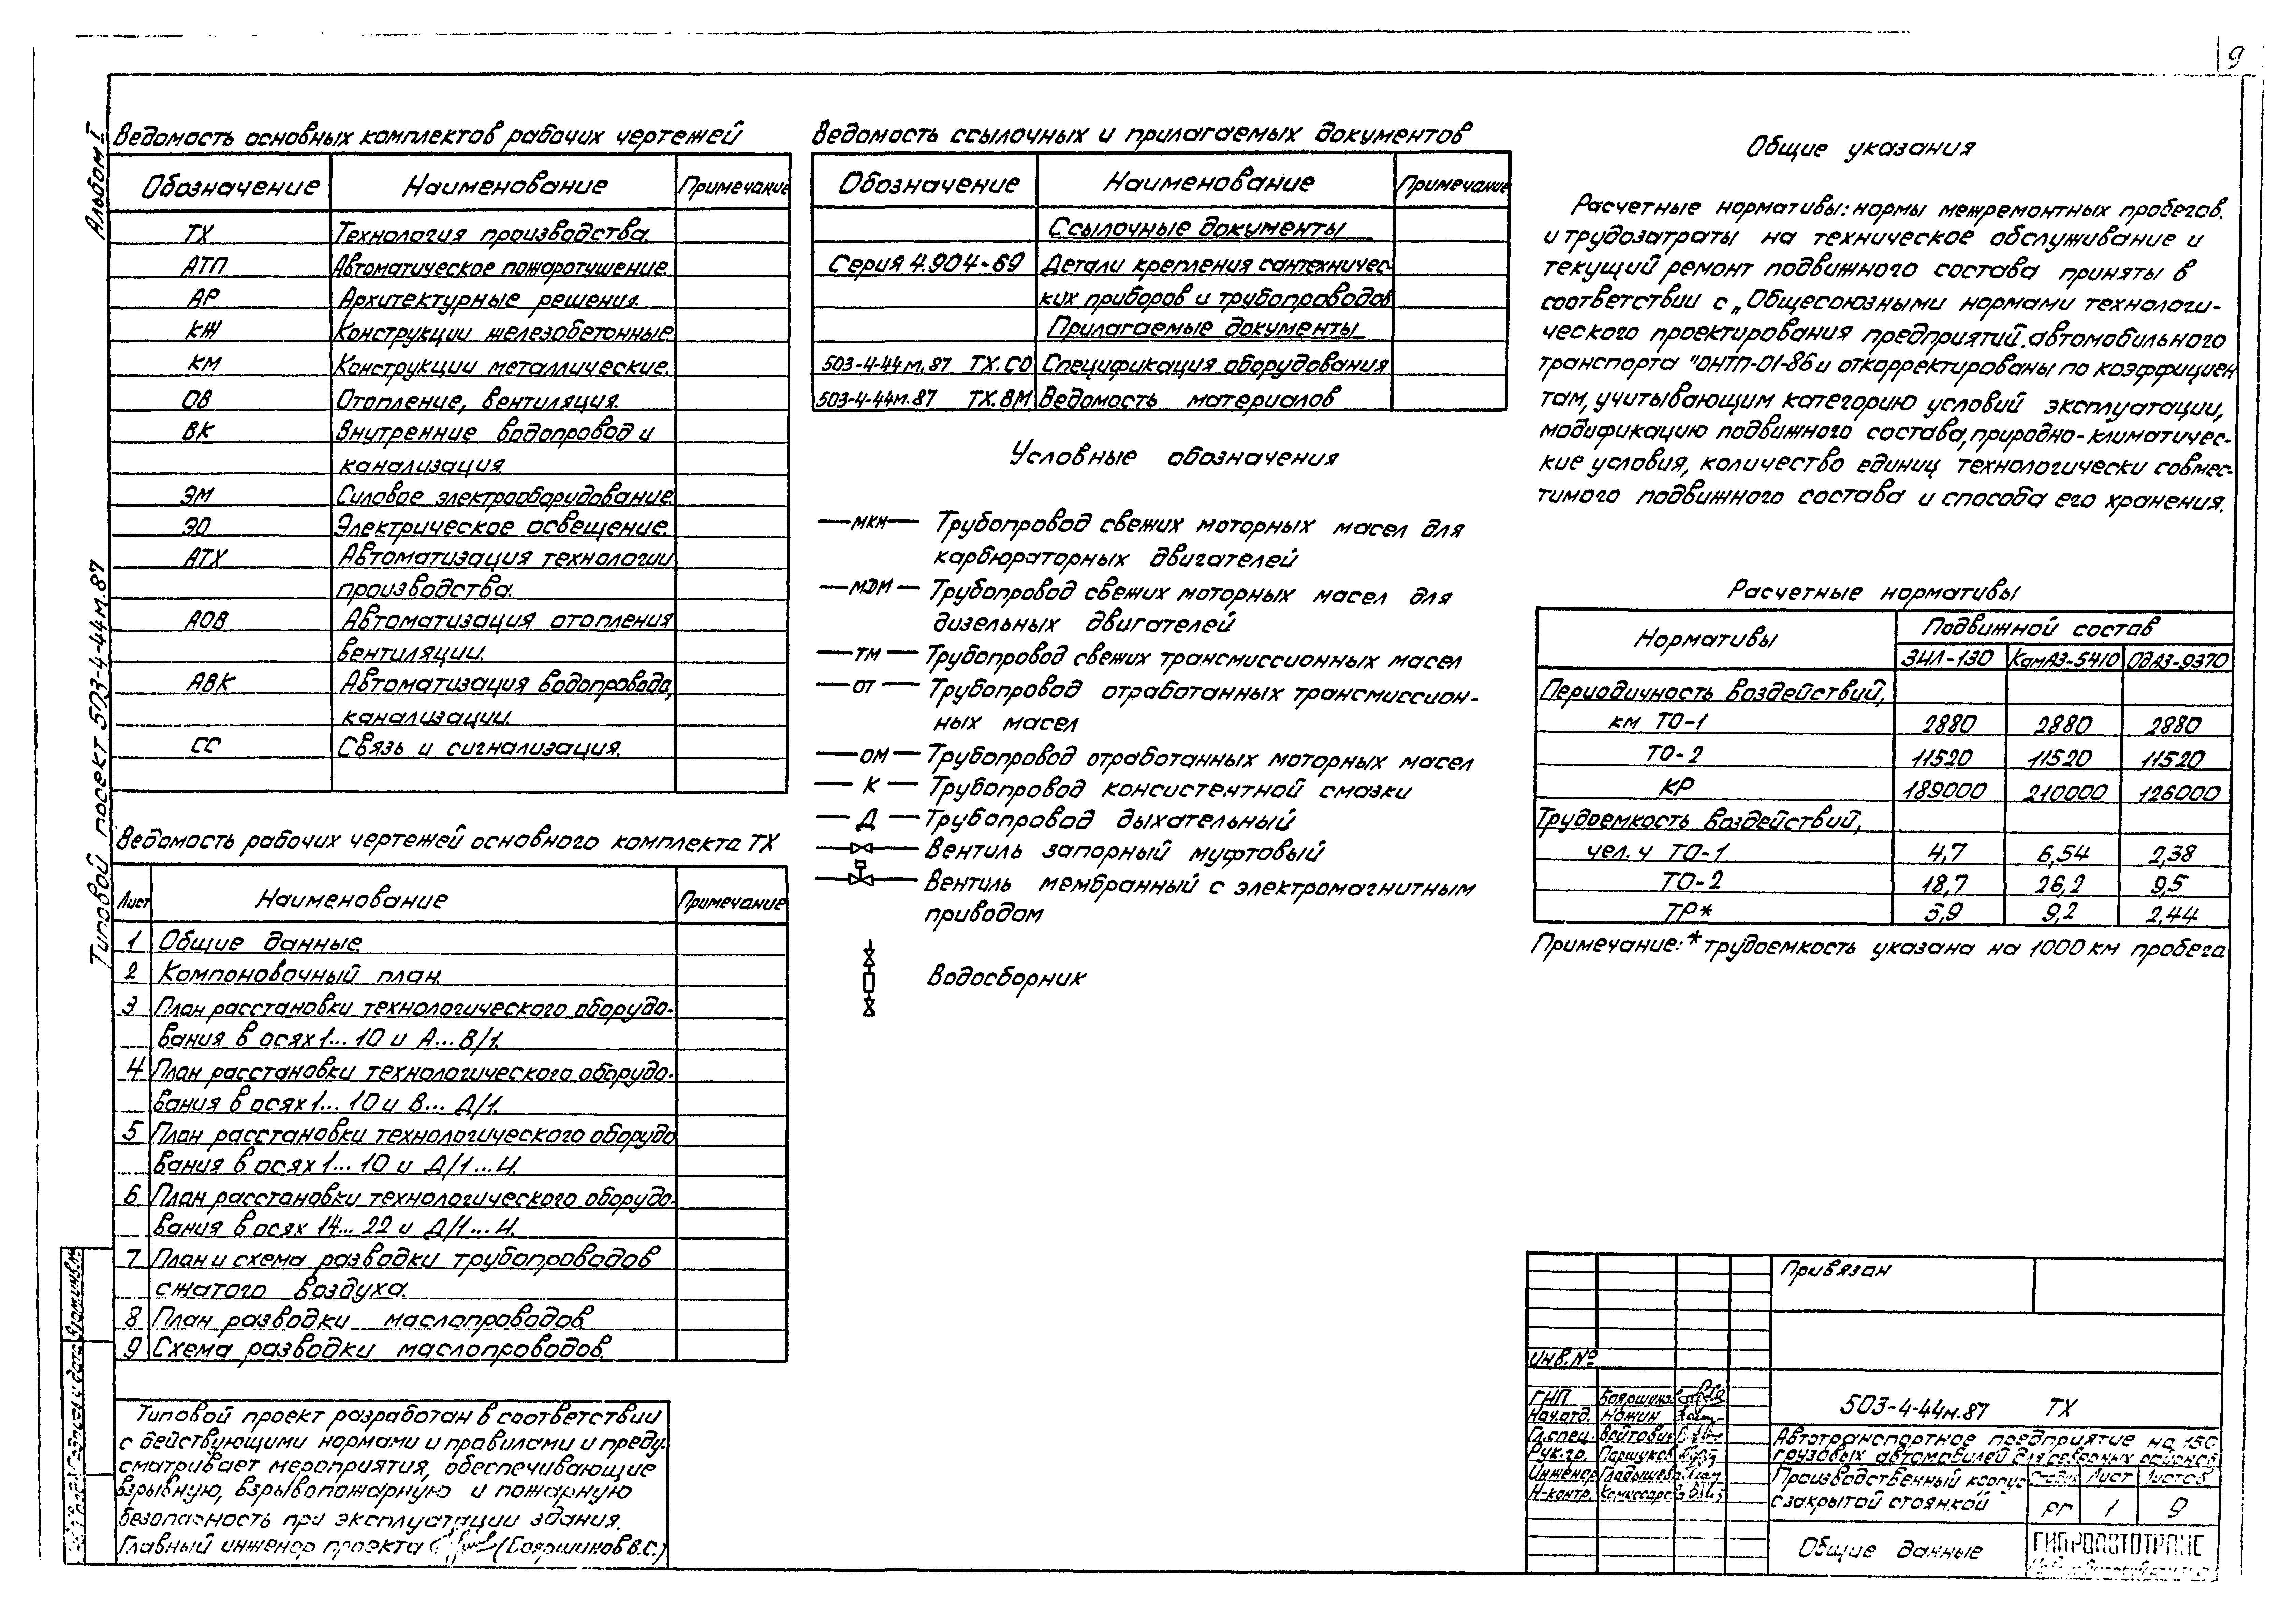 9
Альбом I
Типовой проект 503-4-44м.87
Ведомость основных комплектов рабочих чертежей
Обозначение Наименование Примечание
ТХ Технология производства.
АТП Автоматическое пожаротушение
АР Архитектурные решения.
КЖ Конструкции железобетонные
КМ Конструкции металлические.
ОВ Отопление, вентиляция.
ВК Внутренние водопровод и
канализация.
ЭМ Силовое электрооборудование
ЭО Электрическое освещение.
АТХ Автоматизация технологии
производства.
АОВ Автоматизация отопления
вентиляции.
АВК Автоматизация водопровода,
канализации.
СС Связь и сигнализация.
Ведомость рабочих чертежей основного комплекта ТХ
Лист Наименование Примечание
1 Общие данные.
2 Компоновочный план.
3 План расстановки технологического оборудо-
вания в осях 1...10 и А...В/1.
4 План расстановки технологического оборудо-
вания в осях 1...10 и В...Д/1.
5 План расстановки технологического оборудо
вания в осях 1...10 и Д/1...И.
6 План расстановки технологического оборудо-
вания в осях 14...22 и Д/1...И.
7 План и схема разводки трубопроводов
сжатого воздуха.
8 План разводки маслопроводов
9 Схема разводки маслопроводов.
Типовой проект разработан в соответствии
с действующими нормами и правилами и преду-
сматривает мероприятия, обеспечивающие
взрывную, взрывопожарную и пожарную
безопасность при эксплуатации здания.
Главный инженер проекта (Бояршинов В.С.)
Ведомость ссылочных и прилагаемых документов
Обозначение Наименование Примечание
Ссылочные документы
Серия 4.904-69 Детали крепления сантехничес
ких приборов и трубопроводов
Прилагаемые документы
503-4-44м.87 ТХ.СО Спецификация оборудования
503-4-44м.87 ТХ.ВМ Ведомость материалов
Условные обозначения
МКМ Трубопровод свежих моторных масел для
карбюраторных двигателей
МДМ Трубопровод свежих моторных масел для
дизельных двигателей
ТМ Трубопровод свежих трансмиссионных масел
ОТ Трубопровод отработанных трансмиссион-
ных масел
ОМ Трубопровод отработанных моторных масел
К Трубопровод консистентной смазки
Д Трубопровод дыхательный
Вентиль запорный муфтовый
Вентиль мембранный с электромагнитным
приводом
Водосборник
Общие указания
Расчетные нормативы: нормы межремонтных пробегов.
и трудозатраты на техническое обслуживание и
текущий ремонт подвижного состава приняты в
соответствии с „Общесоюзными нормами технологи-
ческого проектирования предприятий.автомобильного
транспорта" ОНТП-01-86 и откорректированы по коэффициен
там, учитывающим категорию условий эксплуатации,
модификацию подвижного состава, природно-климатичес-
кие условия, количество единиц технологически совмес-
тимого подвижного состава и способа его хранения.
Расчетные нормативы
Нормативы Подвижной состав
ЗИЛ-130 КамАЗ-5410 ОдАЗ-9370
Периодичность воздействий,
км ТО-1 2880 2880 2880
ТО-2 11520 11520 11520
КР 189000 210000 126000
Трудоемкость воздействий,
чел.ч ТО-1 4,7 6,54 2,38
ТО-2 18,7 26,2 9,5
ТР* 5,9 9,2 2,44
Примечание: * трудоемкость указана на 1000 км пробега
Привязан
Инв.№
ГИП Бояршинов
Нач.отд. Ножин
Гл.спец. Войтович
Рук.гр. Паршуков
Инженер Гладышева
Н-контр. Комиссаров
503-4-44м.87 ТХ
Автотранспортное предприятие на 150
грузовых автомобилей для северных районов
Производственный корпус
с закрытой стоянкой
Стадия Лист Листов
РП 1 9
Общие данные
ГИПРОАВТОТРАНС